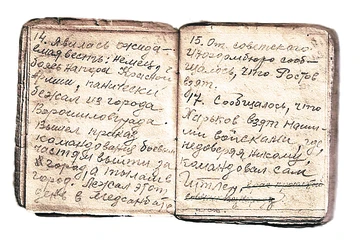 14. Явилась ожида-
емая весть: немец, у
боясь напора Красной
Армии, панически
бежал из города
Ворошиловграда.
Вышел приказ
командования боевым
частям выйти за
город, а тылам в
город. Лежал этот
день в медсанбате
15. От советского
Информбюро сооб-
щалось, что Ростов
взят.
17. Сообщалось, что
Харьков взят наши-
ми войсками, где,
недоверяя никому,
командовал сам
Гитлер,